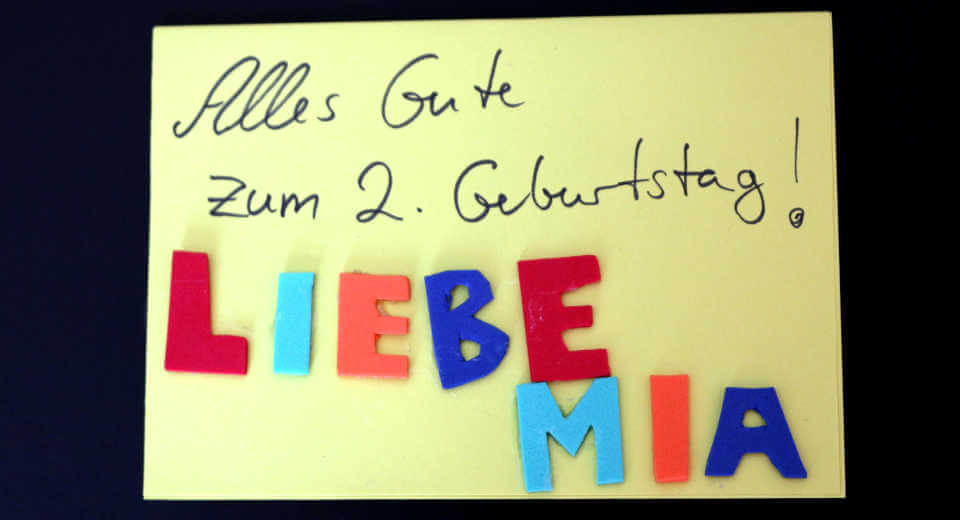 Alles Gute
zum 2. Geburtstag!
LIEBE
MIA